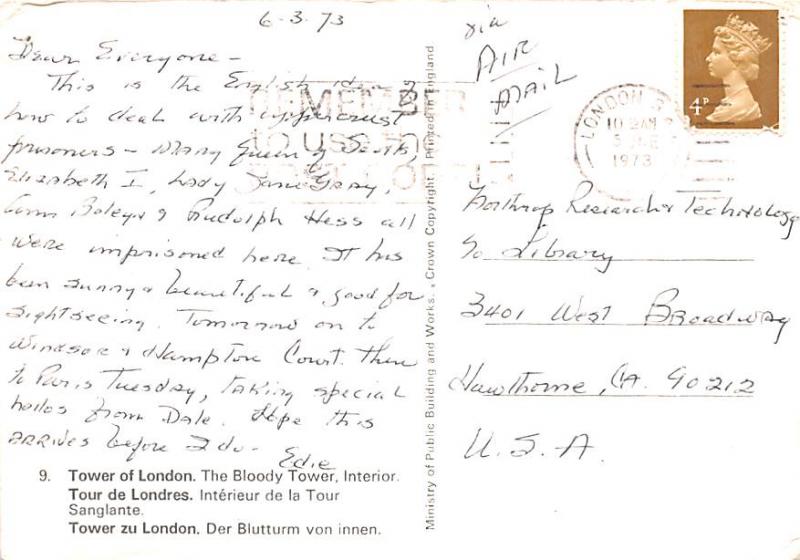 6-3-73
Dear Everyone -
This is the English idea of
how to deal with uppercrust
prisoners - Mary Queen of Scots,
Elizabeth I, Lady Jane Gray,
Ann Boleyn & Rudolph Hess all
were imprisoned here. It has
been sunny & beautiful & good for
sightseeing. Tomorrow on to
Windsor & Hampton Court. then
to Paris Tuesday, taking special
hellos from Dale. Hope this
arrives before I do -
Edie
9. Tower of London. The Bloody Tower, Interior.
Tour de Londres. Intérieur de la Tour
Sanglante.
Tower zu London. Der Blutturm von innen.
Ministry of Public Building and Works. Crown Copyright. Printed in England
REMEMBER
to use the
via
AIR
MAIL
LONDON
5 JNE
1973
4P
Northrop Research & Technology
c/o Library
3401 West Broadway
Hawthorne, CA. 90212
U.S.A.